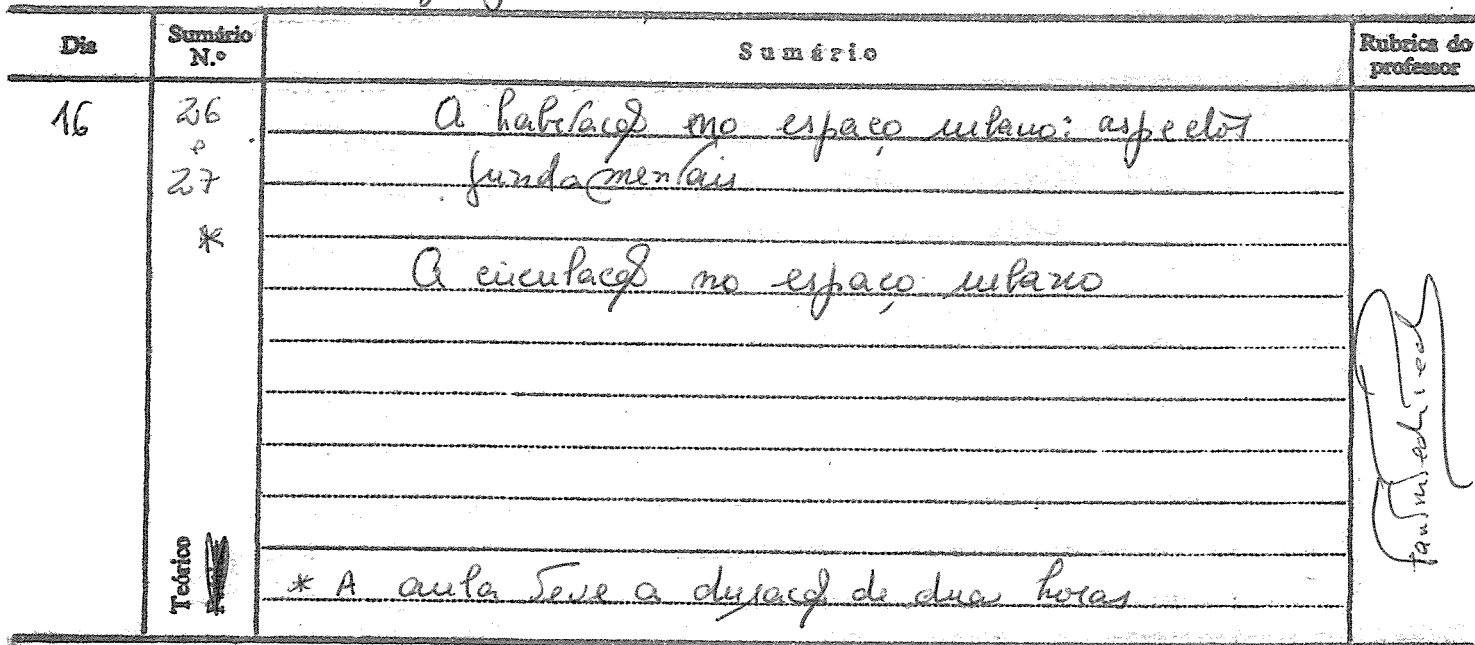 Dia Sumário N.º Sumário Rubrica do professor
16 26 e 27 * A habitação no espaço urbano: aspectos
fundamentais
A circulação no espaço urbano
Teórico
* A aula teve a duração de duas horas